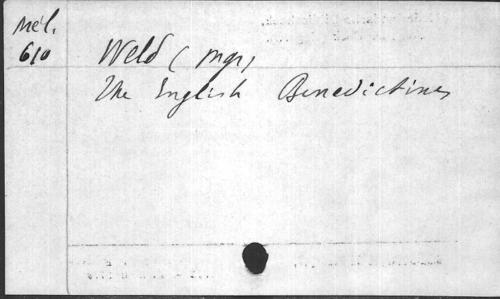 Mél.
610
Weld (Mgr)
The English Benedictines